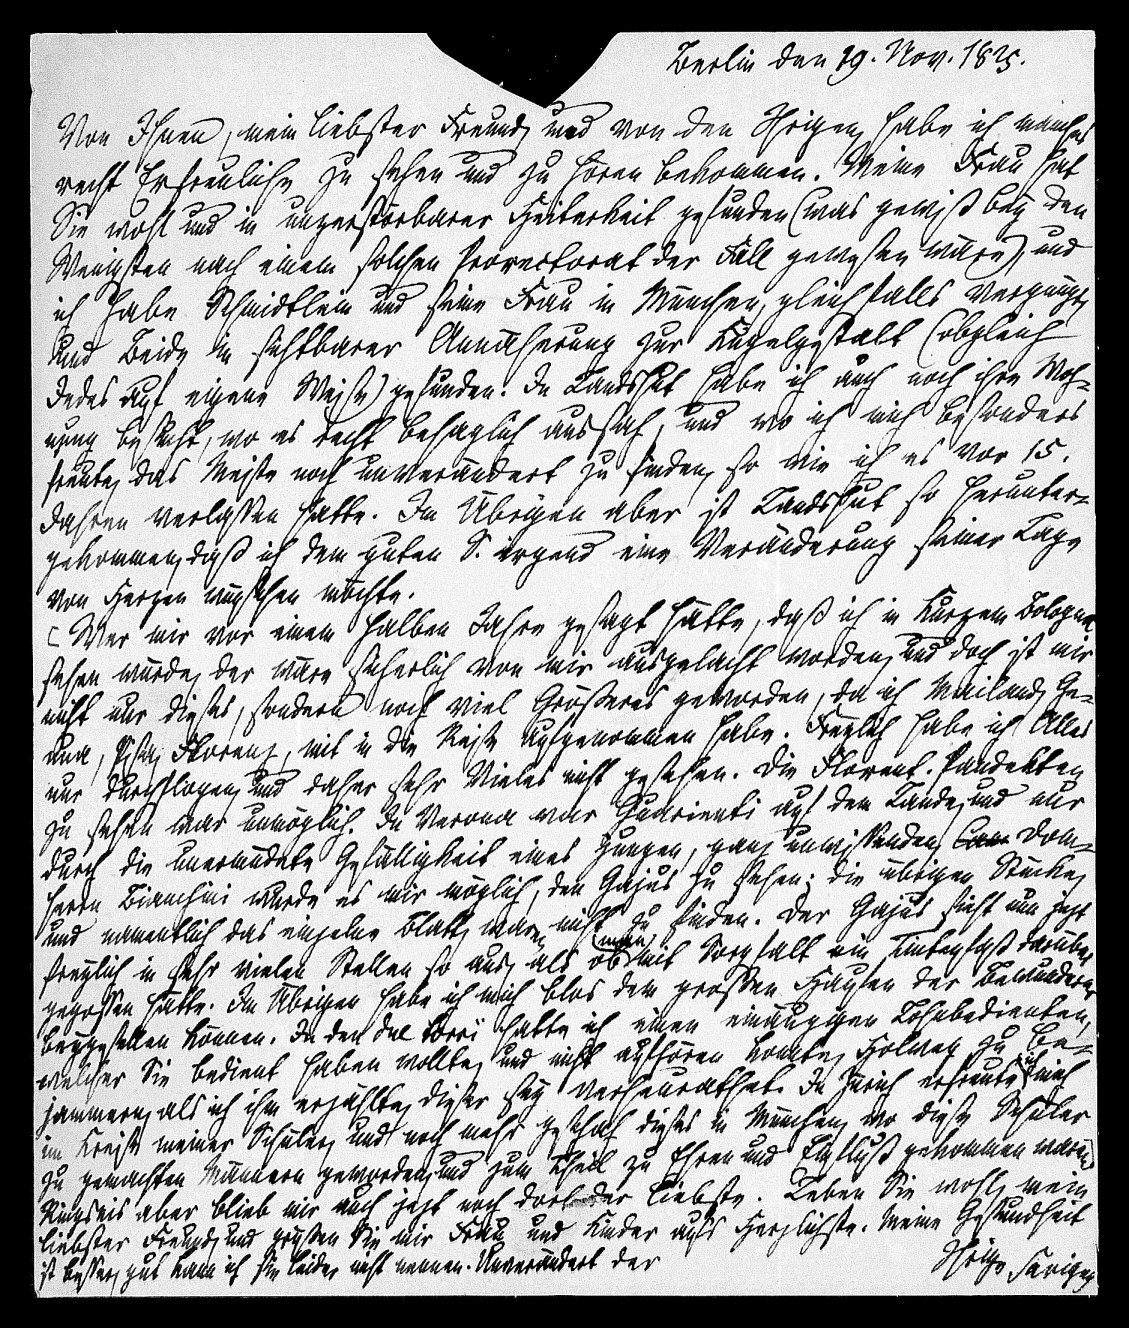 Berlin den 29. Nov. 1825.
Von Ihnen, mein liebster Freund, und von den Ihrigen, habe ich manches
recht Erfreuliche zu sehen und zu hören bekommen. Meine Frau hat
Sie wohl und in unzerstörbarer Heiterkeit gefunden (was gewiß bey den
Wenigsten nach einem solchen Prorectorat der Fall gewesen wäre), und
ich habe Schmidtlein und seine Frau in München, gleichfalls vergnügt,
und Beide in sichtbarer Annäherung zur Kugelgestalt (obgleich
Jedes auf eigene Weise) gefunden. In Landshut habe ich auch noch ihre Woh-
nung besucht, wo es recht behaglich aussah, und wo ich mich besonders
freute, das Meiste noch unverändert zu finden, so wie ich es vor 15.
Jahren verlassen hatte. Im Übrigen aber ist Landshut so herunter-
gekommen, daß ich dem guten S. irgend eine Veränderung seiner Lage
von Herzen wünschen möchte.
[ Wer mir vor einem halben Jahre gesagt hätte, daß ich in Kurzem Bologna
sehen würde, der wäre sicherlich von mir ausgelacht worden, und doch ist mir
nicht nur dieses, sondern noch viel Größeres geworden, da ich Mailand, Ge-
nua, Pisa, Florenz, mit in die Reise aufgenommen habe. Freylich habe ich Alles
nur durchflogen, und daher sehr Vieles nicht gesehen. Die Florent. Pandekten
zu sehen war unmöglich. In Verona war Guarienti auf dem Lande, und nur
durch die unermüdete Gefälligkeit eines jungen, ganz unwissenden Dom-
herrn Bianchini wurde es mir möglich, den Gajus zu sehen; die übrigen Stücke,
und namentlich das einzelne Blatt, waren nicht zu finden. Der Gajus sieht nun jezt
freylich in sehr vielen Stellen so aus, als ob man mit Sorgfalt ein Tintenfaß darüber
gegossen hätte. Im Übrigen habe ich mich blos dem großen Haufen der Bewunderer
beygesellen können. In den due torri hatte ich einen einäugigen Lohnbedienten,
welcher Sie bedient haben wollte, und nicht aufhören konnte, Hollweg zu be-
jammern, als ich ihm erzählte, dieser sey verheurathet. In Zürich erfreute ich mich
im Kreise meiner Schüler, und noch mehr geschah dieses in München, wo diese Schüler
zu gemachten Männern geworden, und zum Theil zu Ehren und Einfluß gekommen waren]
Ringseis aber blieb mir auch jezt noch dort der liebste. Leben Sie wohl, mein
liebster Freund, und grüßen Sie mir Frau und Kinder aufs Herzlichste. Meine Gesundheit
ist besser, gut kann ich sie leider nicht nennen. Unverändert der
Ihrige Savigny